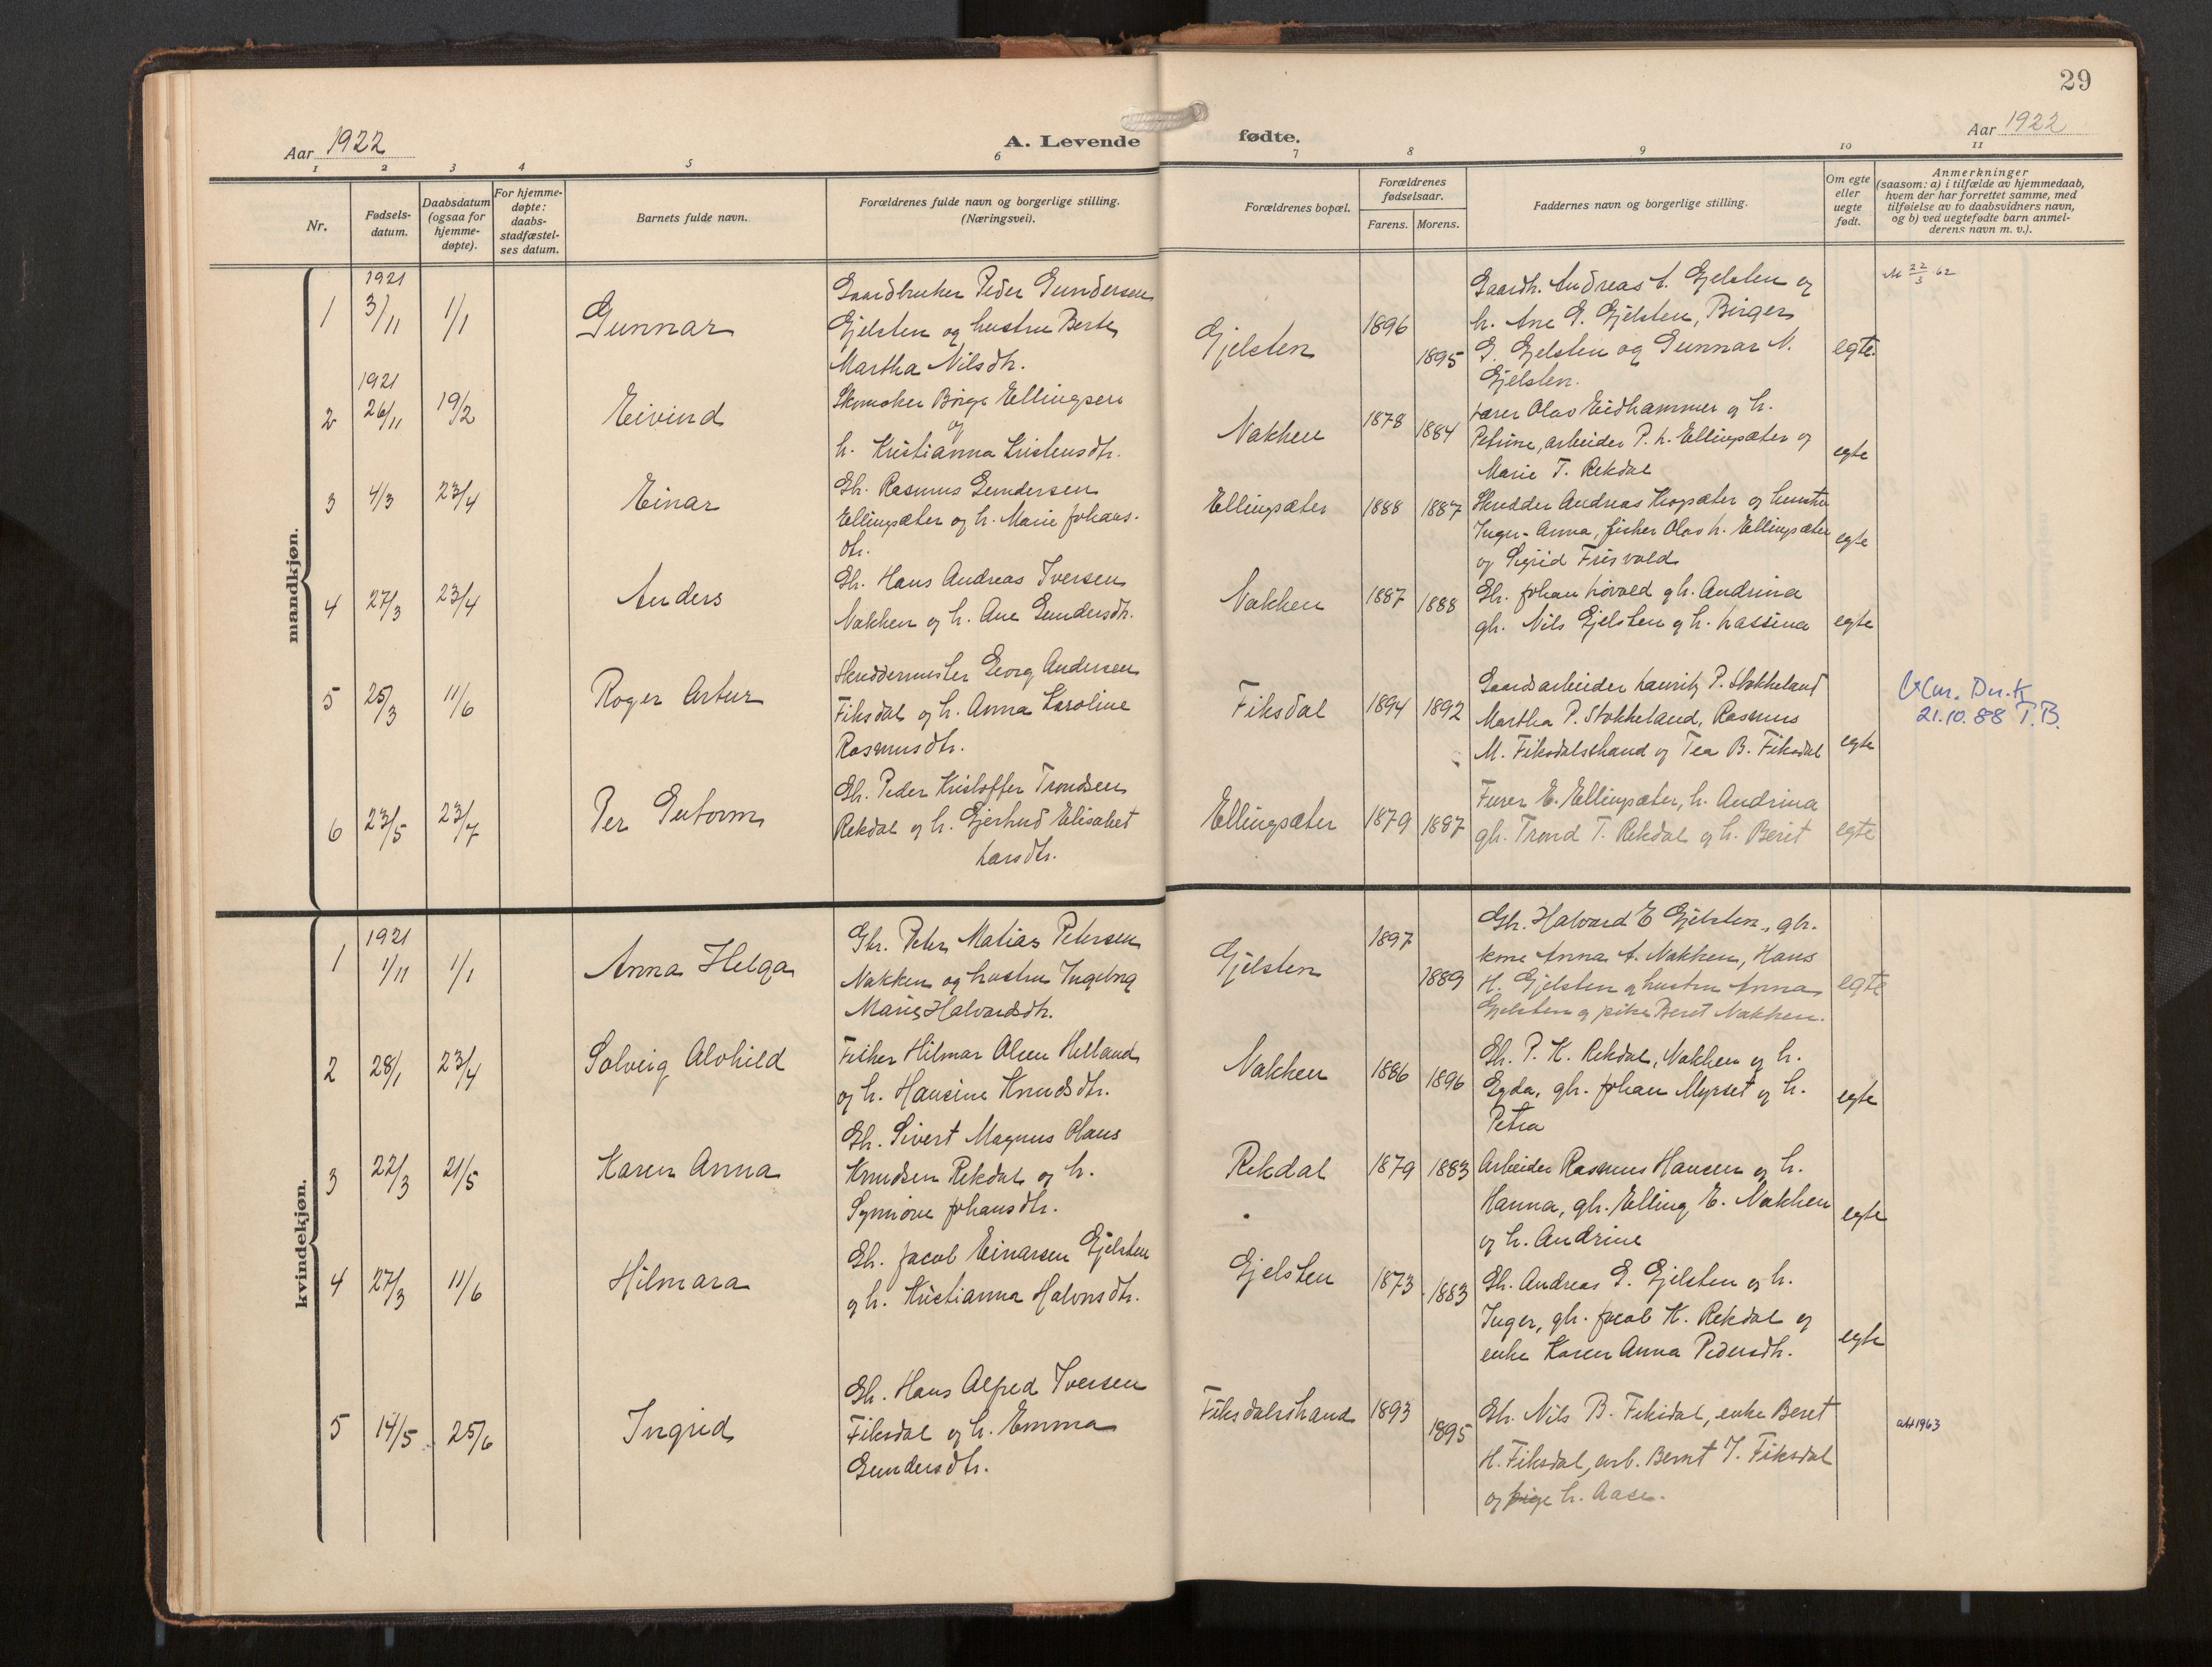 29
Aar 1922
A. Levende
fødte.
Aar 1922
1 2 3 4 5 6 7 8 9 10 11
Nr.
Fødsels-
datum.
Daabsdatum
(ogsaa for
hjemme-
døpte).
For hjemme-
døpte:
daabs-
stadfæstel-
ses datum.
Barnets fulde navn.
Forældrenes fulde navn og borgerlige stilling.
(Næringsvei).
Forældrenes bopæl.
Forældrenes
fødselsaar.
Farens. Morens.
Faddernes navn og borgerlige stilling.
Om egte
eller
uegte
født.
Anmerkninger
(saasom: a) i tilfælde av hjemmedaab,
hvem der har forrettet samme, med
tilføielse av to daabsvidners navn,
og b) ved uegtefødte barn anmel-
derens navn m. v.).
mandkjøn.
1
1921
3/11
1/1
Gunnar
Gaardbruker Peder Gundersen
Gjelsten og hustru Berte
Martha Nilsdtr.
Gjelsten
1896
1895
Gaardb. Andreas A. Gjelsten og
h. Ane G. Gjelsten, Birger
G. Gjelsten og Gunnar N.
Gjelsten.
egte
M 22/3 62
2
1921
26/11
19/2
Eivind
Skomaker Børge Ellingsen
og
h. Kristianna Kristensdtr.
Nakken
1878
1884
Olav Eidhammer og h.
Petrine, arbeider P. L. Ellingsæter og
Marie T. Rekdal
egte
3
4/3
23/4
Einar
Gb. Rasmus Gundersen
Ellingsæter og h. Marie Johans-
dtr.
Ellingsæter
1888
1887
Skredder Andreas Kopsæter og hustru
Inger-Anna, fisker Olav L. Ellingsæter
og Sigrid Frisvold
egte
4
27/3
23/4
Anders
Gb. Hans Andreas Iversen
Nakken og h. Ane Gundersdtr.
Nakken
1887
1888
Gb. Johan Løvold og h. Andrina
gb. Nils Gjelsten og h. Lassina
egte
5
25/3
11/6
Roger Artur
Skreddermester Georg Andersen
Fiksdal og h. Anna Karoline
Rasmusdtr.
Fiksdal
1894
1892
Gaardsarbeider Lauritz P. Stokkeland
Martha P. Stokkeland, Rasmus
M. Fiksdalstrand og Tea B. Fiksdal
egte
21.10.88 T.B.
6
23/5
23/7
Per Gutorm
Gb. Peder Kristoffer Trondsen
Rekdal og h. Gjertrud Elisabet
Larsdtr.
Ellingsæter
1879
1887
E. Ellingsæter, h. Andrina
gb. Trond T. Rekdal og h. Berit
egte
kvindekjøn.
1
1921
1/11
1/1
Anna Helga
Gbr. Peter Matias Petersen
Nakken og hustru Ingeborg
Marie Halvardsdtr.
Gjelsten
1897
1889
Gbr. Halvard E Gjelsten, gbr.
kone Anna A. Nakken, Hans
H. Gjelsten og hustru Anna
Gjelsten og pike Beret Nakken.
egte
2
28/1
23/4
Solveig Alvhild
Fisker Hilmar Olsen Helland
og h. Hansine Knudsdtr.
Nakken
1886
1896
Gb. P. K. Rekdal, Nakken og h.
Egda, gb. Johan Myrset og h.
Petra
egte
3
22/3
21/5
Karen Anna
Gb. Sivert Magnus Olaus
Knudsen Rekdal og h.
Synnøve Johansdtr.
Rekdal
1879
1883
Arbeider Rasmus Hansen og h.
Hanna, gb. Elling E. Nakken
og h. Andrine
egte
4
27/3
11/6
Hilmara
Gb. Jacob Einarsen Gjelsten
og h. Kristianna Halvorsdtr.
Gjelsten
1873
1883
Gb. Andreas E. Gjelsten og h.
Inger, gb. Jacob K. Rekdal og
enke Karen Anna Pedersdtr.
egte
5
14/5
25/6
Ingrid
Gb. Hans Alfred Iversen
Fiksdal og h. Emma
Gundersdtr.
Fiksdalstrand
1893
1895
Gb. Nils B. Fiksdal, enke Beret
H. Fiksdal, arb. Bernt I. Fiksdal
og pige h. Aase.
att 1963